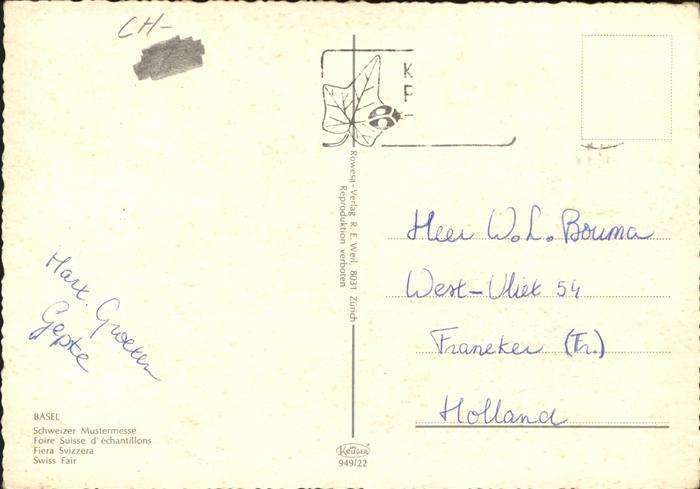 CH-
K
P
-
Rowesa-Verlag R. E. Weil, 8031 Zürich
Reproduktion verboten
Heer W.L. Bouma
West-Vliet 54
Franeker (Fr.)
Holland
Hart. Groeten
Gepke
BASEL
Schweizer Mustermesse
Foire Suisse d'échantillons
Fiera Svizzera
Swiss Fair
949/22